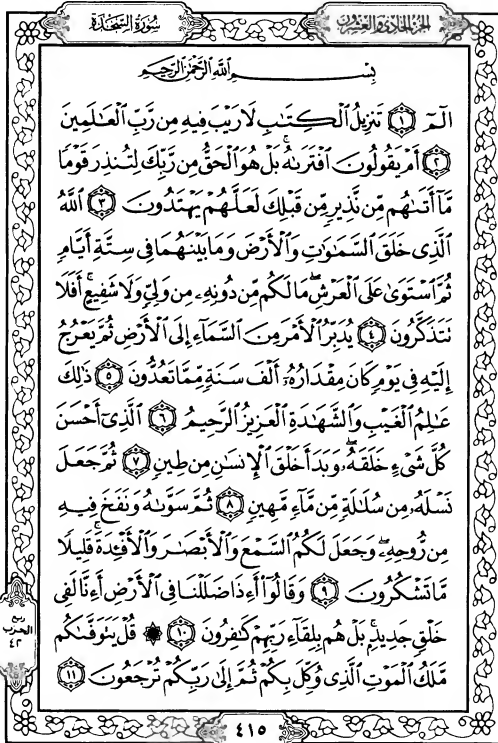 الجزء الحادي والعشرون
سُورَةُ السَّجْدَةِ
بِسْمِ اللَّهِ الرَّحْمَٰنِ الرَّحِيمِ
الٓمٓ ١ تَنزِيلُ ٱلْكِتَٰبِ لَا رَيْبَ فِيهِ مِن رَّبِّ ٱلْعَٰلَمِينَ
٢ أَمْ يَقُولُونَ ٱفْتَرَىٰهُ ۚ بَلْ هُوَ ٱلْحَقُّ مِن رَّبِّكَ لِتُنذِرَ قَوْمًا
مَّآ أَتَىٰهُم مِّن نَّذِيرٍ مِّن قَبْلِكَ لَعَلَّهُمْ يَهْتَدُونَ ٣ ٱللَّهُ
ٱلَّذِى خَلَقَ ٱلسَّمَٰوَٰتِ وَٱلْأَرْضَ وَمَا بَيْنَهُمَا فِى سِتَّةِ أَيَّامٍ
ثُمَّ ٱسْتَوَىٰ عَلَى ٱلْعَرْشِ ۖ مَا لَكُم مِّن دُونِهِۦ مِن وَلِىٍّ وَلَا شَفِيعٍ ۚ أَفَلَا
تَتَذَكَّرُونَ ٤ يُدَبِّرُ ٱلْأَمْرَ مِنَ ٱلسَّمَآءِ إِلَى ٱلْأَرْضِ ثُمَّ يَعْرُجُ
إِلَيْهِ فِى يَوْمٍ كَانَ مِقْدَارُهُۥٓ أَلْفَ سَنَةٍ مِّمَّا تَعُدُّونَ ٥ ذَٰلِكَ
عَٰلِمُ ٱلْغَيْبِ وَٱلشَّهَٰدَةِ ٱلْعَزِيزُ ٱلرَّحِيمُ ٦ ٱلَّذِىٓ أَحْسَنَ
كُلَّ شَىْءٍ خَلَقَهُۥ ۖ وَبَدَأَ خَلْقَ ٱلْإِنسَٰنِ مِن طِينٍ ٧ ثُمَّ جَعَلَ
نَسْلَهُۥ مِن سُلَٰلَةٍ مِّن مَّآءٍ مَّهِينٍ ٨ ثُمَّ سَوَّىٰهُ وَنَفَخَ فِيهِ
مِن رُّوحِهِۦ ۖ وَجَعَلَ لَكُمُ ٱلسَّمْعَ وَٱلْأَبْصَٰرَ وَٱلْأَفْـِٔدَةَ ۚ قَلِيلًا
مَّا تَشْكُرُونَ ٩ وَقَالُوٓا۟ أَءِذَا ضَلَلْنَا فِى ٱلْأَرْضِ أَءِنَّا لَفِى
خَلْقٍ جَدِيدٍۭ ۚ بَلْ هُم بِلِقَآءِ رَبِّهِمْ كَٰفِرُونَ ١٠ ۞ قُلْ يَتَوَفَّىٰكُم
مَّلَكُ ٱلْمَوْتِ ٱلَّذِى وُكِّلَ بِكُمْ ثُمَّ إِلَىٰ رَبِّكُمْ تُرْجَعُونَ ١١
ربع
الحزب
٤٢
٤١٥